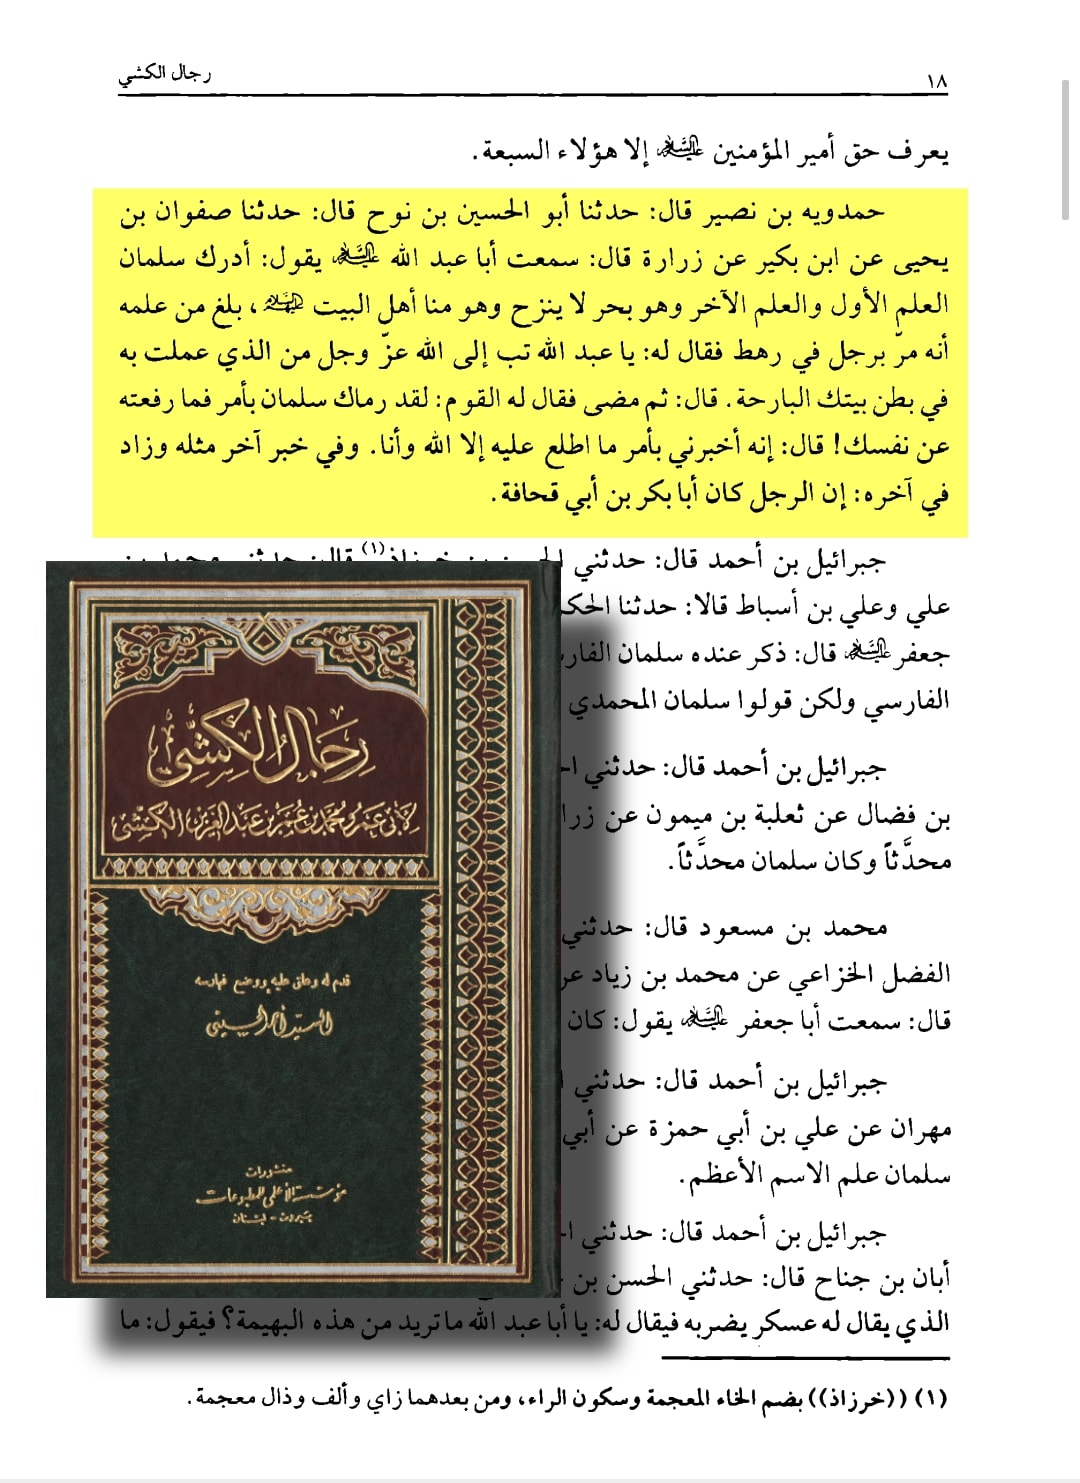 ١٨
رجال الكشي
يعرف حق أمير المؤمنين عليه السلام إلا هؤلاء السبعة.
حمدويه بن نصير قال: حدثنا أبو الحسين بن نوح قال: حدثنا صفوان بن
يحيى عن ابن بكير عن زرارة قال: سمعت أبا عبد الله عليه السلام يقول: أدرك سلمان
العلم الأول والعلم الآخر وهو بحر لا ينزح وهو منا أهل البيت عليهم السلام، بلغ من علمه
أنه مرّ برجل في رهط فقال له: يا عبد الله تب إلى الله عزّ وجل من الذي عملت به
في بطن بيتك البارحة. قال: ثم مضى فقال له القوم: لقد رماك سلمان بأمر فما رفعته
عن نفسك! قال: إنه أخبرني بأمر ما اطلع عليه إلا الله وأنا. وفي خبر آخر مثله وزاد
في آخره: إن الرجل كان أبا بكر بن أبي قحافة.
جبرائيل بن أحمد قال: حدثني
علي وعلي بن أسباط قالا: حدثنا
جعفر عليه السلام قال: ذكر عنده سلمان
الفارسي ولكن قولوا سلمان المحمدي
جبرائيل بن أحمد قال: حدثني
بن فضال عن ثعلبة بن ميمون عن
محدَّثاً وكان سلمان محدَّثاً.
محمد بن مسعود قال: حدثني
الفضل الخزاعي عن محمد بن زياد
قال: سمعت أبا جعفر عليه السلام يقول: كان
جبرائيل بن أحمد قال: حدثني
مهران عن علي بن أبي حمزة عن أبي
سلمان علم الاسم الأعظم.
جبرائيل بن أحمد قال: حدثني
أبان بن جناح قال: حدثني الحسن بن
الذي يقال له عسكر يضربه فيقال له: يا أبا عبد الله ما تريد من هذه البهيمة؟ فيقول: ما
(١) ((خرزاذ)) بضم الخاء المعجمة وسكون الراء، ومن بعدهما زاي وألف وذال معجمة.
رجال الكشي
لأبي عمرو محمد بن عمر بن عبد العزيز الكشي
قدم له وعلق عليه ووضع فهارسه
السيد أحمد الحسيني
منشورات
مؤسسة الأعلمي للمطبوعات
بيروت - لبنان